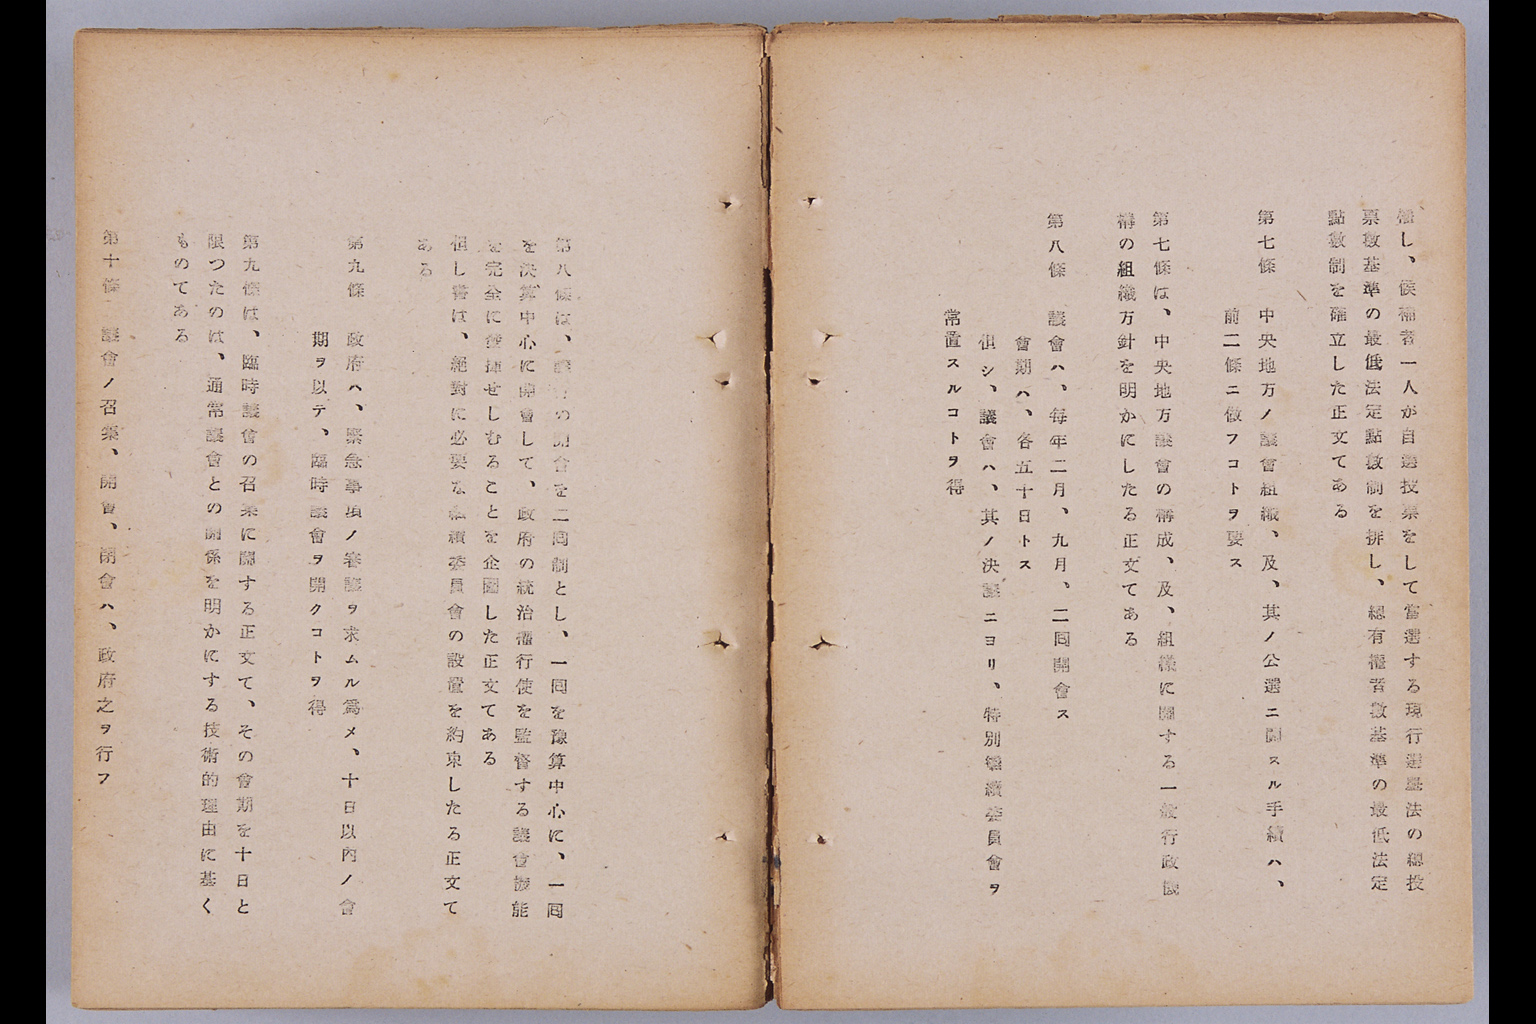 權し、候補者一人が自選投票をして當選する現行選擧法の總投
票數基準の最低法定點數制を排し、總有權者數基準の最低法定
點數制を確立した正文てある
第七條 中央地方ノ議會組織、及、其ノ公選ニ關スル手續ハ、
前二條ニ倣フコトヲ要ス
第七條は、中央地方議會の構成、及、組織に關する一般行政機
構の組織方針を明かにしたる正文てある
第八條 議會ハ、每年二月、九月、二囘開會ス
會期ハ、各五十日トス
但シ、議會ハ、其ノ決議ニヨリ、特別繼續委員會ヲ
常置スルコトヲ得
第八條は、議會の開會を二囘制とし、一囘を豫算中心に、一囘
を決算中心に開會して、政府の統治權行使を監督する議會機能
を完全に發揮せしむることを企圖した正文てある
但し書は、絕對に必要な繼續委員會の設置を約束したる正文て
ある
第九條 政府ハ、緊急事項ノ審議ヲ求ムル爲メ、十日以內ノ會
期ヲ以テ、臨時議會ヲ開クコトヲ得
第九條は、臨時議會の召集に關する正文て、その會期を十日と
限つたのは、通常議會との關係を明かにする技術的理由に基く
ものてある
第十條 議會ノ召集、開會、閉會ハ、政府之ヲ行フ